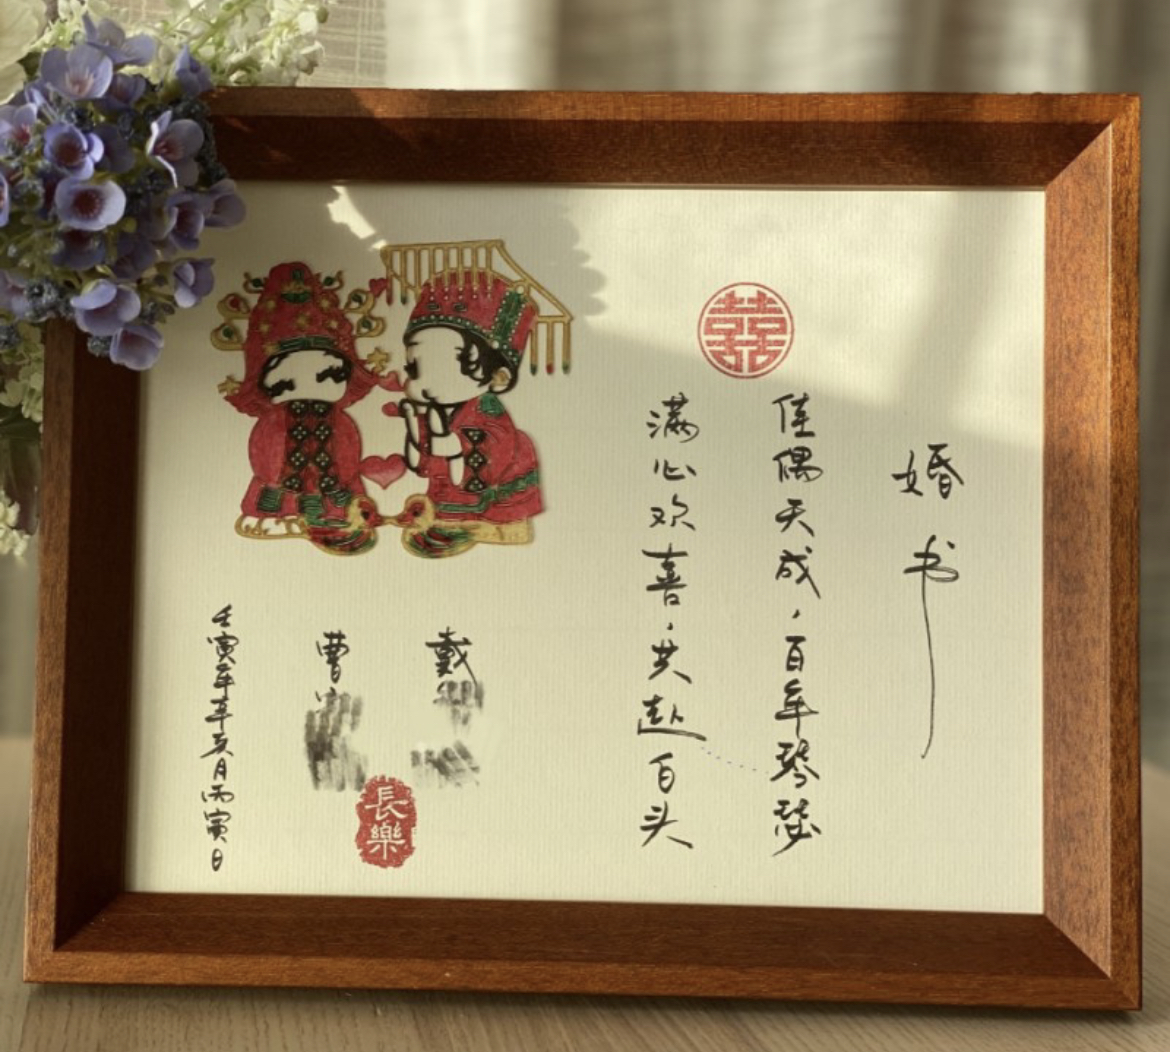 婚书
囍
佳偶天成，百年琴瑟
满心欢喜，共赴白头
戴
曹
長樂
壬寅年辛亥月丙寅日